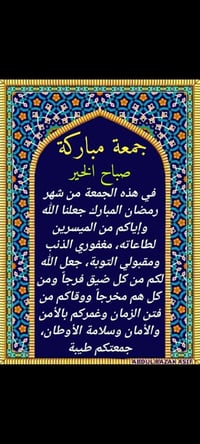 جمعة مباركة
صباح الخير
في هذه الجمعة من شهر
رمضان المبارك جعلنا الله
وإياكم من الميسرين
لطاعاته، مغفوري الذنب
ومقبولي التوبة، جعل الله
لكم من كل ضيق فرجاً ومن
كل هم مخرجاً ووقاكم من
فتن الزمان وغمركم بالأمن
والأمان وسلامة الأوطان،
جمعتكم طيبة
ABDULWAZAK ASEE